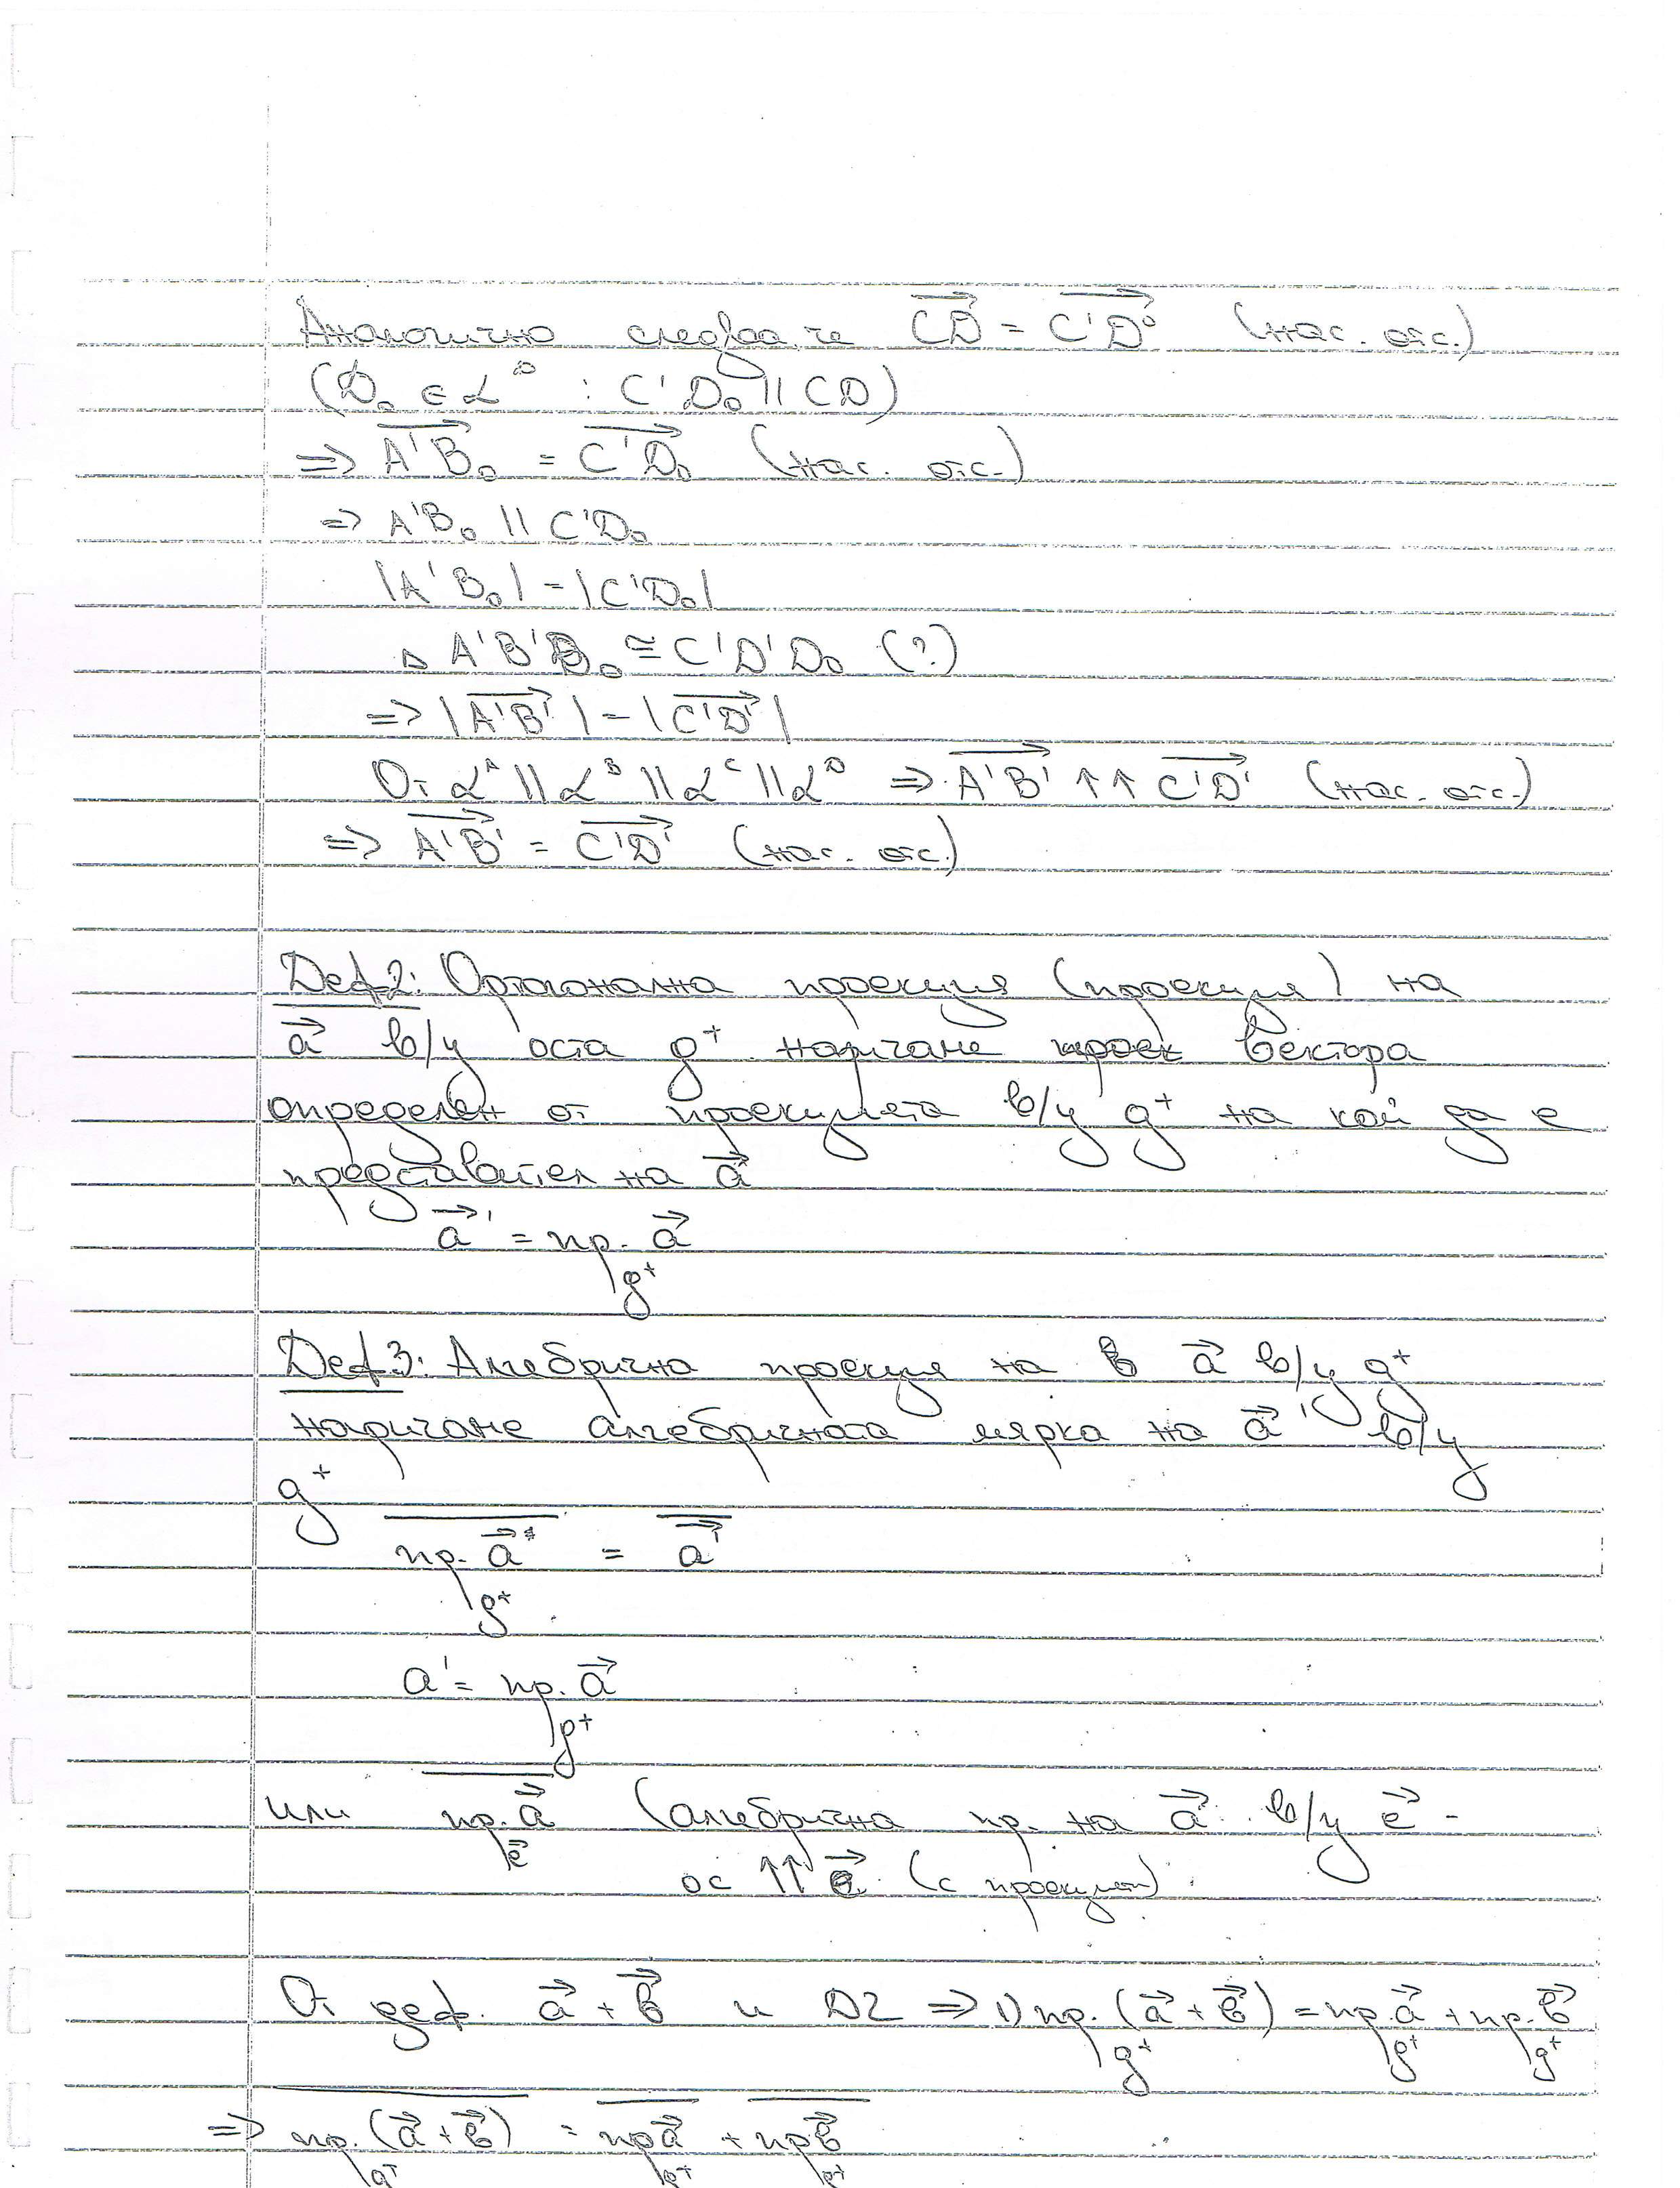 Аналогично следва, че $\overrightarrow{CD} = \overrightarrow{C'D_0}$ (нас. отс.)
($D_0 \in \alpha^D : C'D_0 \parallel CD$)
$\Rightarrow \overrightarrow{A'B_0} = \overrightarrow{C'D_0}$ (нас. отс.)
$\Rightarrow A'B_0 \parallel C'D_0$
$|A'B_0| = |C'D_0|$
$\triangle A'B'B_0 \cong C'D'D_0$ (?)
$\Rightarrow |\overrightarrow{A'B'}| = |\overrightarrow{C'D'}|$
От $\alpha^A \parallel \alpha^B \parallel \alpha^C \parallel \alpha^D \Rightarrow \overrightarrow{A'B'} \uparrow\uparrow \overrightarrow{C'D'}$ (нас. отс.)
$\Rightarrow \overrightarrow{A'B'} = \overrightarrow{C'D'}$ (нас. отс.)
Деф2: Ортогонална проекция (проекция) на
$\vec{a}$ в/у оста $g^+$ наричаме вектора
определен от проекцията в/у $g^+$ на кой да е
представител на $\vec{a}$
$\vec{a}' = пр._{g^+} \vec{a}$
Деф3: Алгебрична проекция на в $\vec{a}$ в/у $g^+$
наричаме алгебричната мярка на $\vec{a}'$ в/у
$g^+$
$\overline{пр._{g^+} \vec{a}} = \overline{\vec{a}'}$
$a' = пр._{g^+} \vec{a}$
или $\overline{пр._{\vec{e}} \vec{a}}$ (алгебрична пр. на $\vec{a}$ в/у $\vec{e}$ -
ос $\uparrow\uparrow \vec{e}$ (с проекция)
От деф. $\vec{a} + \vec{b}$ и D2 $\Rightarrow$ 1) $пр._{g^+} (\vec{a} + \vec{b}) = пр._{g^+} \vec{a} + пр._{g^+} \vec{b}$
$\Rightarrow \overline{пр._{g^+} (\vec{a} + \vec{b})} = \overline{пр_{g^+} \vec{a}} + \overline{пр_{g^+} \vec{b}}$